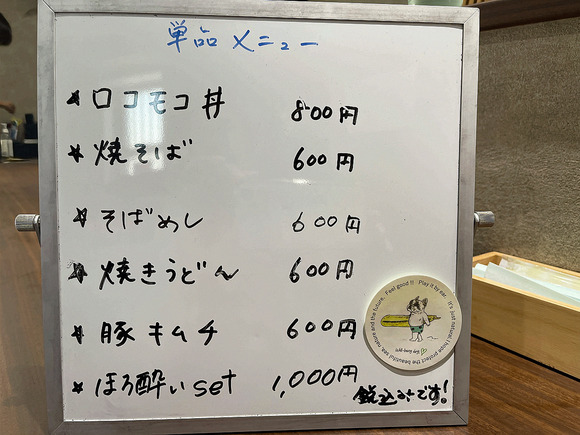 単品メニュー
★ロコモコ丼 800円
★焼そば 600円
★そばめし 600円
★焼きうどん 600円
★豚キムチ 600円
★ほろ酔いset 1,000円
税込みです!
Feel good!! Play it by ear. It's just natural. I hope protect the beautiful sea, nature and the future.